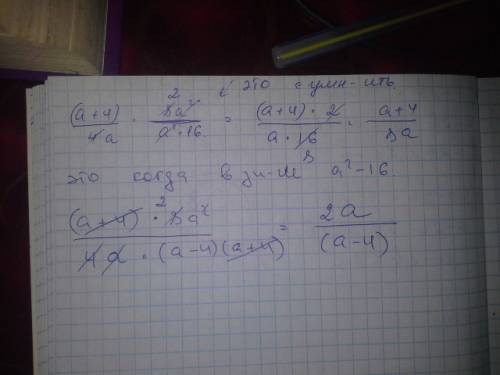 2 ← это с умн-ить
(a+4)/4a · 8a²/a²·16 = (a+4)·2/a·16 8 = a+4/8a
это когда в зн-ле a²-16.
(a+4)·8 2 a²/4a·(a-4)(a+4) = 2a/(a-4)